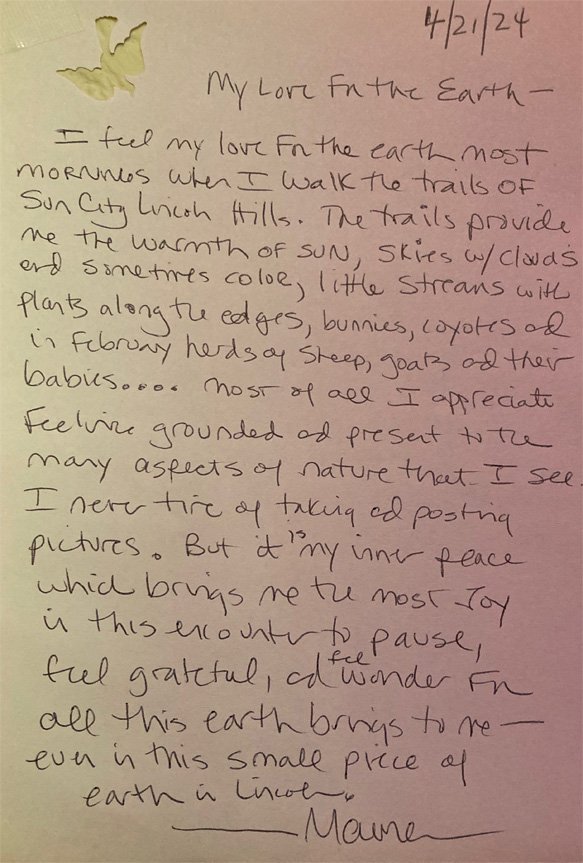 4/21/24
My Love For the Earth —
I feel my love For the earth most
mornings when I walk the trails of
Sun City Lincoln Hills. The trails provide
me the warmth of sun, skies w/ clouds
and sometimes color, little streams with
plants along the edges, bunnies, coyotes and
in February herds of sheep, goats and their
babies.... Most of all I appreciate
Feeling grounded and present to the
many aspects of nature that I see.
I never tire of taking and posting
pictures. But it is my inner peace
which brings me the most Joy
in this encounter to pause,
feel grateful, and feel wonder For
all this earth brings to me —
even in this small piece of
earth in Lincoln.